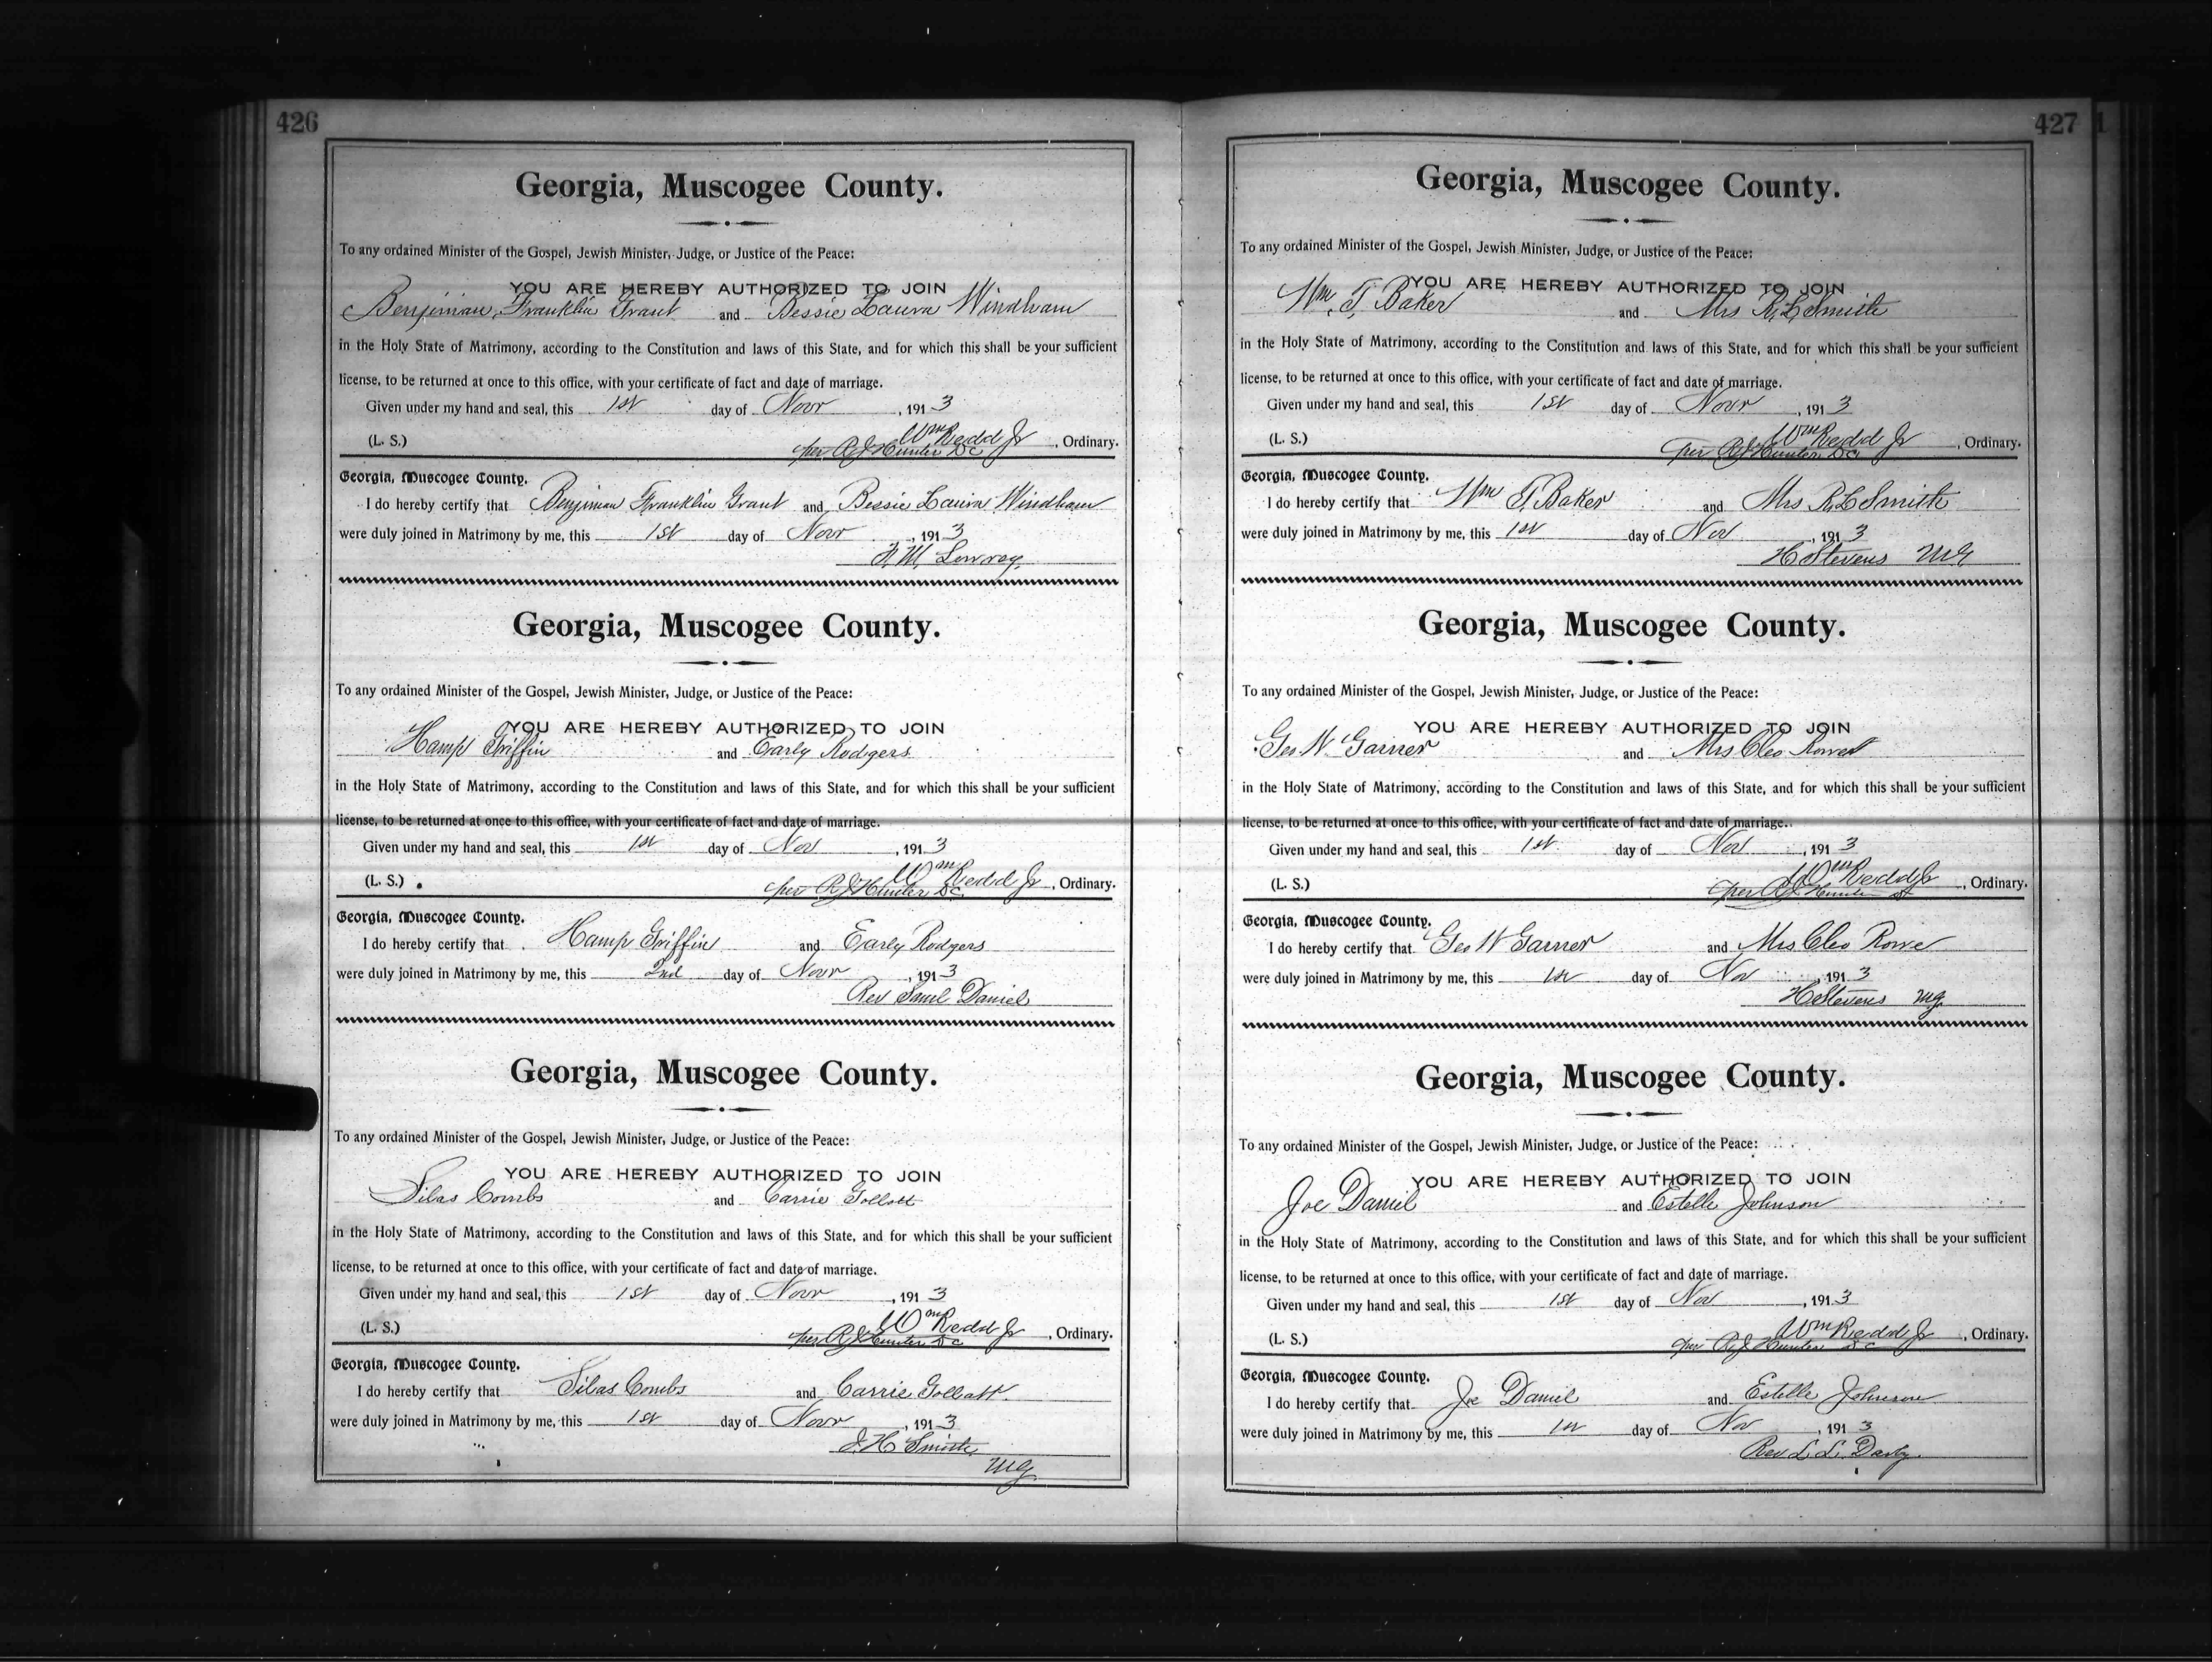 426
Georgia, Muscogee County.
To any ordained Minister of the Gospel, Jewish Minister, Judge, or Justice of the Peace:
YOU ARE HEREBY AUTHORIZED TO JOIN
Benjiman Franklin Grant and Bessie Laura Windham
in the Holy State of Matrimony, according to the Constitution and laws of this State, and for which this shall be your sufficient
license, to be returned at once to this office, with your certificate of fact and date of marriage.
Given under my hand and seal, this 1st day of Novr, 1913
(L. S.) Wm Redd Jr, Ordinary.
per R J Hunter DC
Georgia, Muscogee County.
I do hereby certify that Benjiman Franklin Grant and Bessie Laura Windham
were duly joined in Matrimony by me, this 1st day of Novr, 1913
Lowrey
Georgia, Muscogee County.
To any ordained Minister of the Gospel, Jewish Minister, Judge, or Justice of the Peace:
YOU ARE HEREBY AUTHORIZED TO JOIN
Hamp Griffin and Early Rodgers
in the Holy State of Matrimony, according to the Constitution and laws of this State, and for which this shall be your sufficient
license, to be returned at once to this office, with your certificate of fact and date of marriage.
Given under my hand and seal, this 1st day of Nov, 1913
(L. S.) Wm Redd Jr, Ordinary.
per R J Hunter DC
Georgia, Muscogee County.
I do hereby certify that Hamp Griffin and Early Rodgers
were duly joined in Matrimony by me, this 2nd day of Novr, 1913
Rev Saml Daniel
Georgia, Muscogee County.
To any ordained Minister of the Gospel, Jewish Minister, Judge, or Justice of the Peace:
YOU ARE HEREBY AUTHORIZED TO JOIN
Silas Combs and Carrie Gollatt
in the Holy State of Matrimony, according to the Constitution and laws of this State, and for which this shall be your sufficient
license, to be returned at once to this office, with your certificate of fact and date of marriage.
Given under my hand and seal, this 1st day of Novr, 1913
(L. S.) Wm Redd Jr, Ordinary.
per R J Hunter DC
Georgia, Muscogee County.
I do hereby certify that Silas Combs and Carrie Gollatt
were duly joined in Matrimony by me, this 1st day of Novr, 1913
J. H. Smith
MG
427
Georgia, Muscogee County.
To any ordained Minister of the Gospel, Jewish Minister, Judge, or Justice of the Peace:
YOU ARE HEREBY AUTHORIZED TO JOIN
Wm T. Baker and Mrs R L Smith
in the Holy State of Matrimony, according to the Constitution and laws of this State, and for which this shall be your sufficient
license, to be returned at once to this office, with your certificate of fact and date of marriage.
Given under my hand and seal, this 1st day of Novr, 1913
(L. S.) Wm Redd Jr, Ordinary.
per R J Hunter DC
Georgia, Muscogee County.
I do hereby certify that Wm T. Baker and Mrs R L Smith
were duly joined in Matrimony by me, this 1st day of Nov, 1913
H Stevens MG
Georgia, Muscogee County.
To any ordained Minister of the Gospel, Jewish Minister, Judge, or Justice of the Peace:
YOU ARE HEREBY AUTHORIZED TO JOIN
Geo W. Garner and Mrs Cleo
in the Holy State of Matrimony, according to the Constitution and laws of this State, and for which this shall be your sufficient
license, to be returned at once to this office, with your certificate of fact and date of marriage.
Given under my hand and seal, this 1st day of Nov, 1913
(L. S.) Wm Redd Jr, Ordinary.
per R J Hunter
Georgia, Muscogee County.
I do hereby certify that Geo W Garner and Mrs Cleo Rowe
were duly joined in Matrimony by me, this 1st day of Nov, 1913
H Stevens MG
Georgia, Muscogee County.
To any ordained Minister of the Gospel, Jewish Minister, Judge, or Justice of the Peace:
YOU ARE HEREBY AUTHORIZED TO JOIN
Joe Daniel and Estelle Johnson
in the Holy State of Matrimony, according to the Constitution and laws of this State, and for which this shall be your sufficient
license, to be returned at once to this office, with your certificate of fact and date of marriage.
Given under my hand and seal, this 1st day of Nov, 1913
(L. S.) Wm Redd Jr, Ordinary.
per R J Hunter DC
Georgia, Muscogee County.
I do hereby certify that Joe Daniel and Estelle Johnson
were duly joined in Matrimony by me, this 1st day of Nov, 1913
Rev L. L. Darby